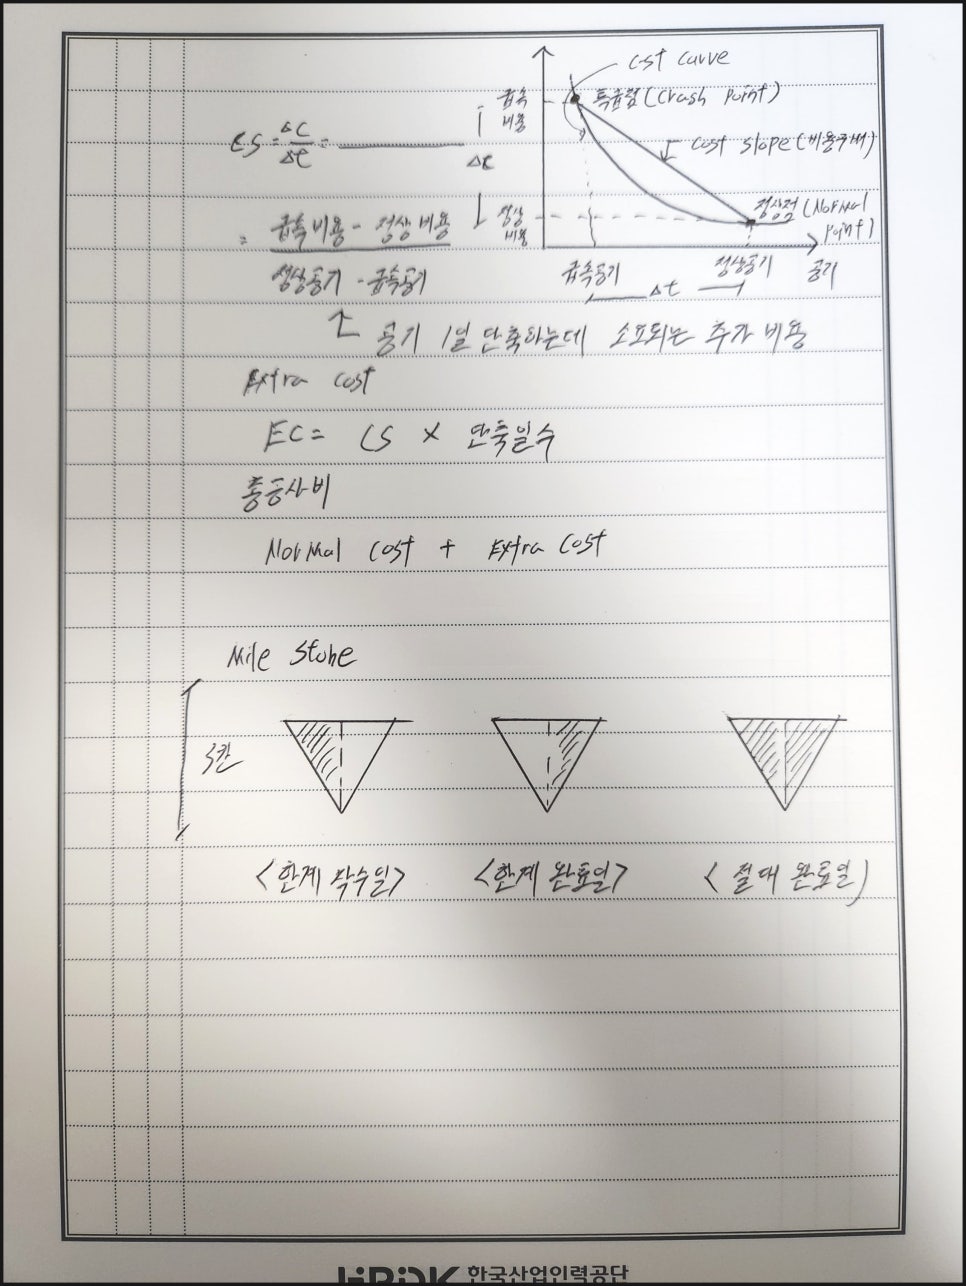 cost curve
급속 비용
특급점 (Crash Point)
CS = ΔC/Δt =
Δc
cost slope (비용구배)
정상 비용
정상점 (Normal Point)
= 급속 비용 - 정상 비용
정상공기 - 급속공기
급속공기
정상공기
공기
Δt
공기 1일 단축하는데 소요되는 추가 비용
Extra cost
EC = CS × 단축일수
총공사비
Normal cost + Extra cost
Mile stone
3칸
<한계 착수일> <한계 완료일> <절대 완료일>
한국산업인력공단